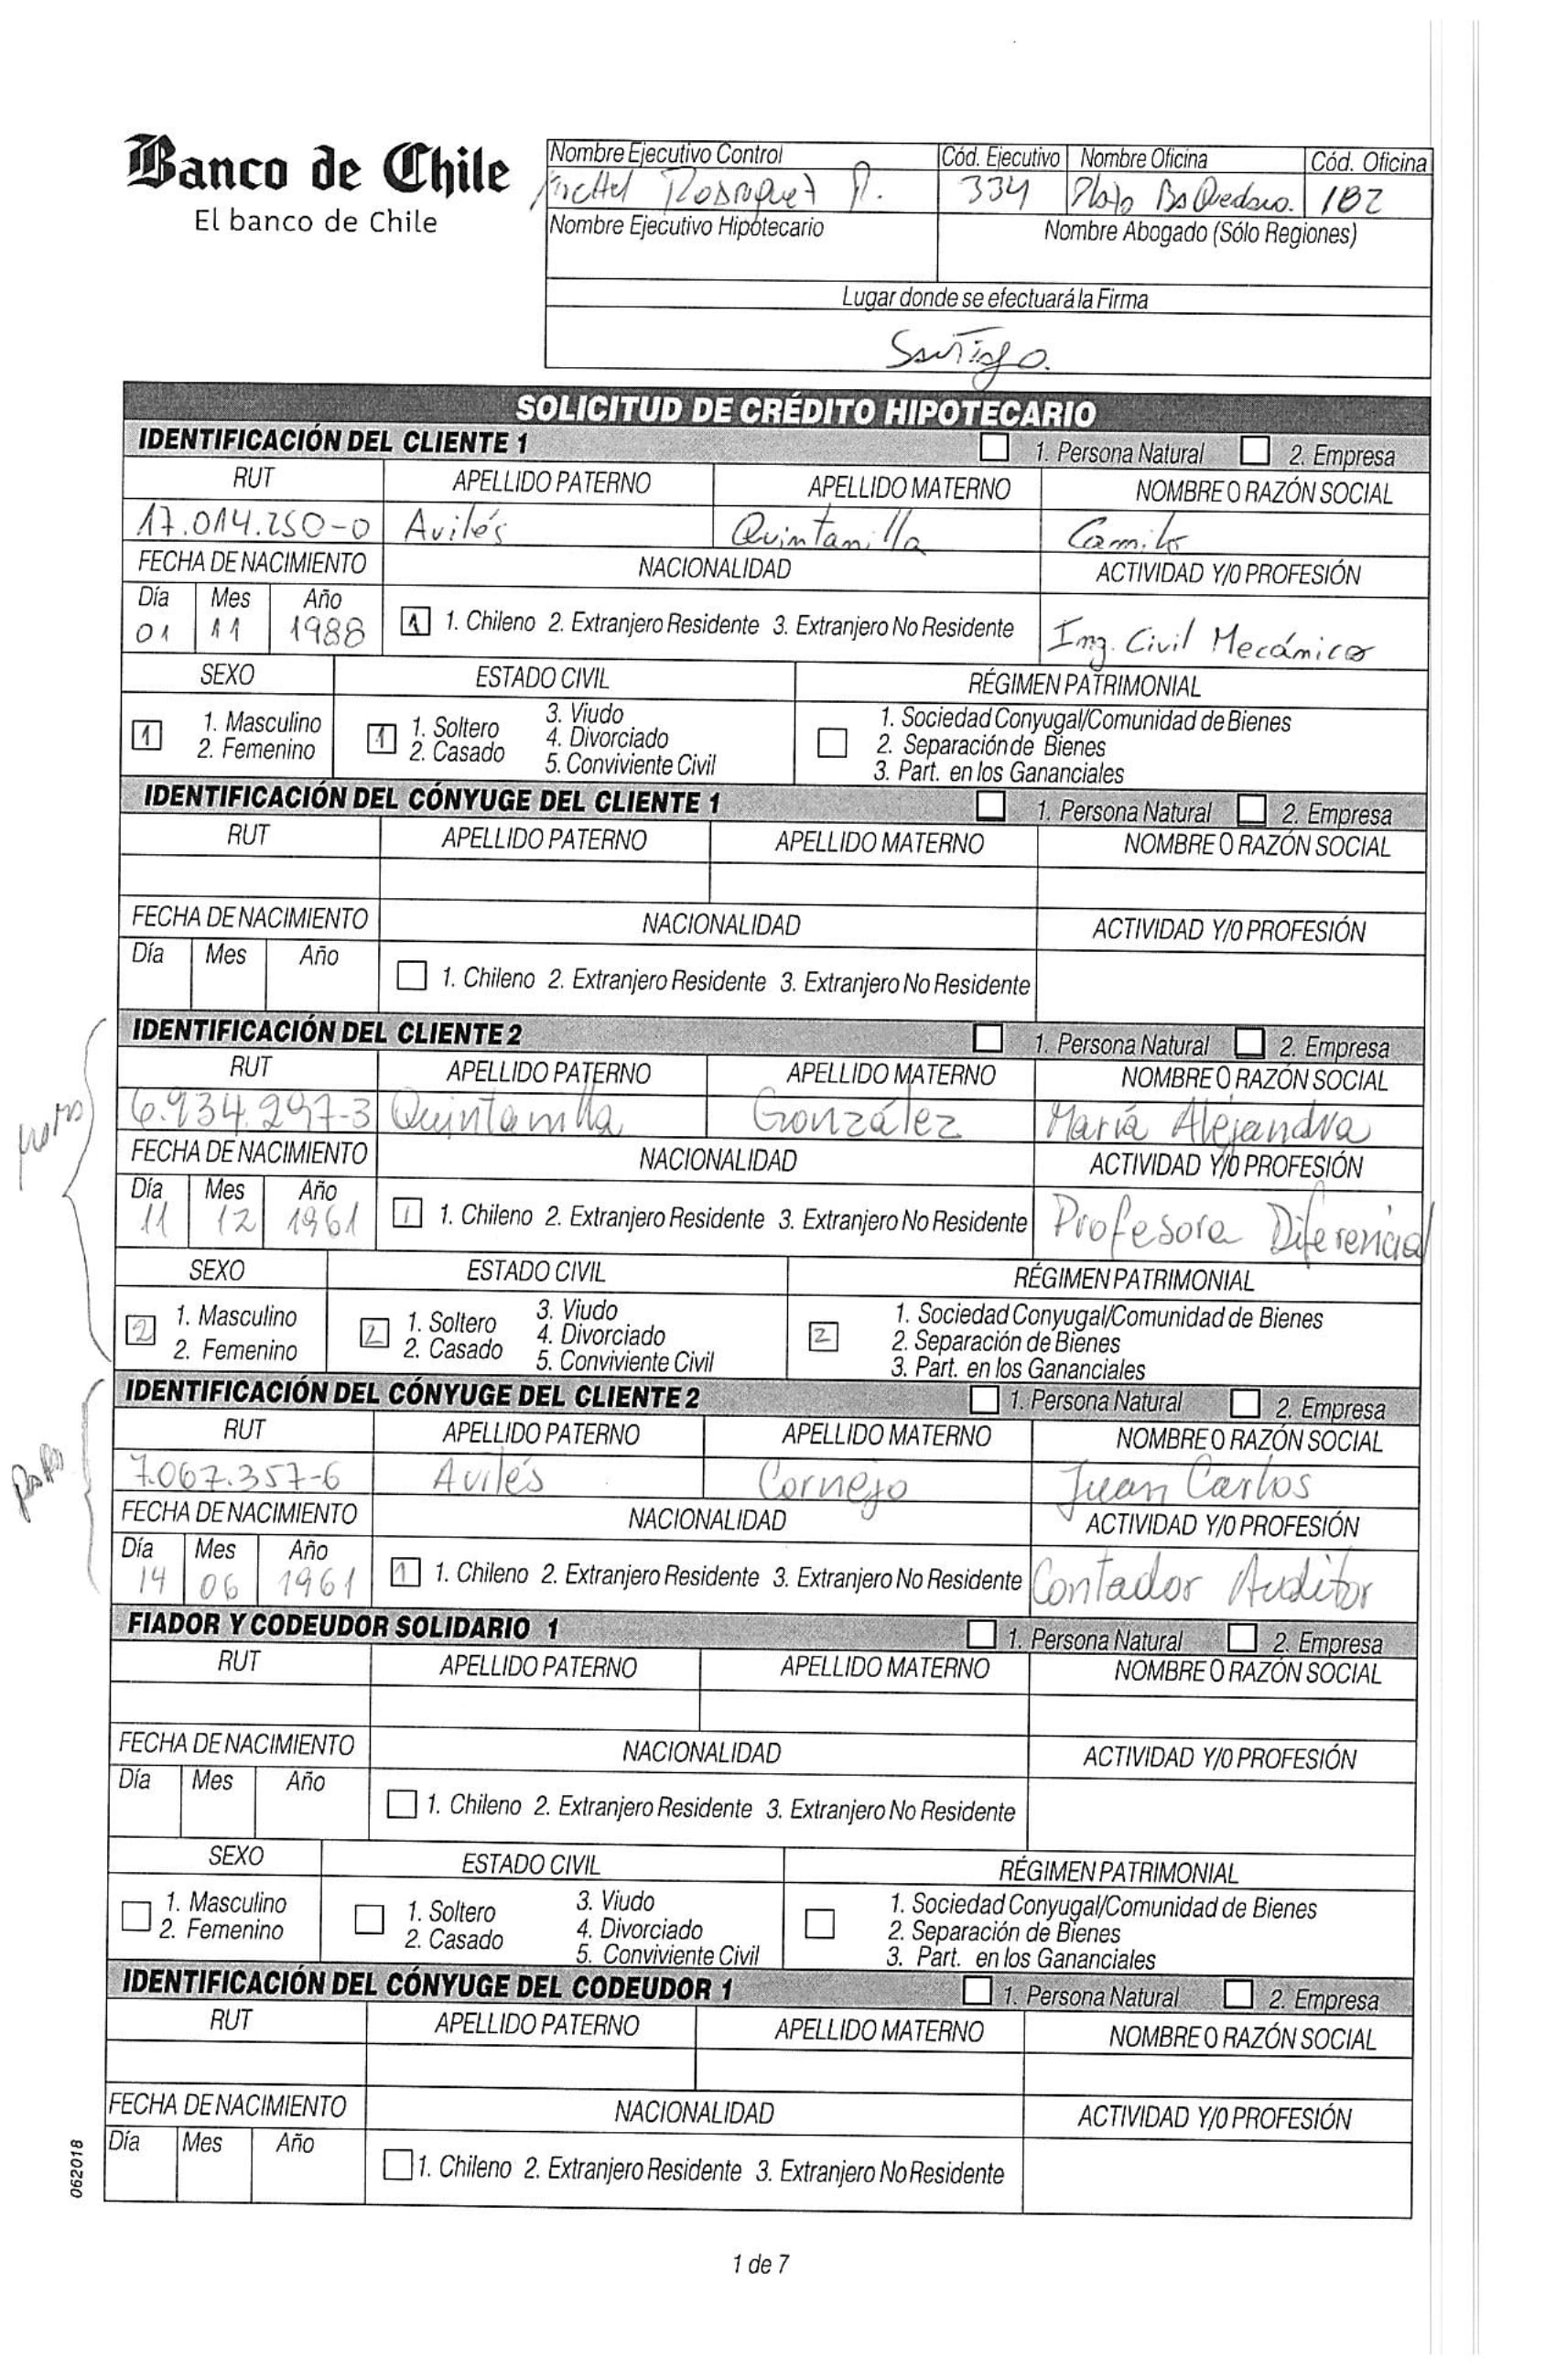 Banco de Chile
El banco de Chile
Nombre Ejecutivo Control Cód. Ejecutivo Nombre Oficina Cód. Oficina
334
Nombre Ejecutivo Hipotecario Nombre Abogado (Sólo Regiones)
Lugar donde se efectuará la Firma
Santiago.
SOLICITUD DE CRÉDITO HIPOTECARIO
IDENTIFICACIÓN DEL CLIENTE 1 1. Persona Natural 2. Empresa
RUT APELLIDO PATERNO APELLIDO MATERNO NOMBRE O RAZÓN SOCIAL
17.014.250-0 Avilés Quintanilla Camilo
FECHA DE NACIMIENTO NACIONALIDAD ACTIVIDAD Y/O PROFESIÓN
Día Mes Año
01 11 1988 1 1. Chileno 2. Extranjero Residente 3. Extranjero No Residente Ing. Civil Mecánico
SEXO ESTADO CIVIL RÉGIMEN PATRIMONIAL
1 1. Masculino 2. Femenino 1 1. Soltero 2. Casado 3. Viudo 4. Divorciado 5. Conviviente Civil 1. Sociedad Conyugal/Comunidad de Bienes 2. Separación de Bienes 3. Part. en los Gananciales
IDENTIFICACIÓN DEL CÓNYUGE DEL CLIENTE 1 1. Persona Natural 2. Empresa
RUT APELLIDO PATERNO APELLIDO MATERNO NOMBRE O RAZÓN SOCIAL
FECHA DE NACIMIENTO NACIONALIDAD ACTIVIDAD Y/O PROFESIÓN
Día Mes Año
1. Chileno 2. Extranjero Residente 3. Extranjero No Residente
IDENTIFICACIÓN DEL CLIENTE 2 1. Persona Natural 2. Empresa
RUT APELLIDO PATERNO APELLIDO MATERNO NOMBRE O RAZÓN SOCIAL
6.934.297-3 Quintanilla González María Alejandra
FECHA DE NACIMIENTO NACIONALIDAD ACTIVIDAD Y/O PROFESIÓN
Día Mes Año
11 12 1961 1 1. Chileno 2. Extranjero Residente 3. Extranjero No Residente Profesora Diferencial
SEXO ESTADO CIVIL RÉGIMEN PATRIMONIAL
2 1. Masculino 2. Femenino 2 1. Soltero 2. Casado 3. Viudo 4. Divorciado 5. Conviviente Civil 2 1. Sociedad Conyugal/Comunidad de Bienes 2. Separación de Bienes 3. Part. en los Gananciales
IDENTIFICACIÓN DEL CÓNYUGE DEL CLIENTE 2 1. Persona Natural 2. Empresa
RUT APELLIDO PATERNO APELLIDO MATERNO NOMBRE O RAZÓN SOCIAL
7.067.357-6 Avilés Cornejo Juan Carlos
FECHA DE NACIMIENTO NACIONALIDAD ACTIVIDAD Y/O PROFESIÓN
Día Mes Año
14 06 1961 1 1. Chileno 2. Extranjero Residente 3. Extranjero No Residente Contador Auditor
FIADOR Y CODEUDOR SOLIDARIO 1 1. Persona Natural 2. Empresa
RUT APELLIDO PATERNO APELLIDO MATERNO NOMBRE O RAZÓN SOCIAL
FECHA DE NACIMIENTO NACIONALIDAD ACTIVIDAD Y/O PROFESIÓN
Día Mes Año
1. Chileno 2. Extranjero Residente 3. Extranjero No Residente
SEXO ESTADO CIVIL RÉGIMEN PATRIMONIAL
1. Masculino 2. Femenino 1. Soltero 2. Casado 3. Viudo 4. Divorciado 5. Conviviente Civil 1. Sociedad Conyugal/Comunidad de Bienes 2. Separación de Bienes 3. Part. en los Gananciales
IDENTIFICACIÓN DEL CÓNYUGE DEL CODEUDOR 1 1. Persona Natural 2. Empresa
RUT APELLIDO PATERNO APELLIDO MATERNO NOMBRE O RAZÓN SOCIAL
FECHA DE NACIMIENTO NACIONALIDAD ACTIVIDAD Y/O PROFESIÓN
Día Mes Año
1. Chileno 2. Extranjero Residente 3. Extranjero No Residente
062018
1 de 7